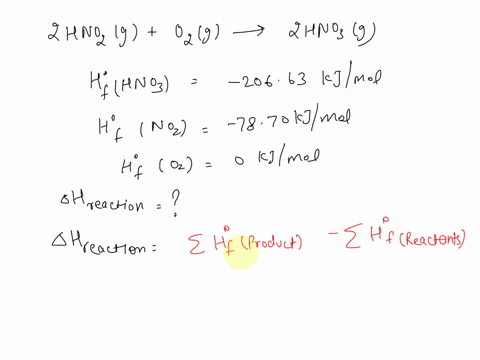 2HNO₂(g) + O₂(g) → 2HNO₃(g)
H°f(HNO₃) = -206.63 KJ/mol
H°f (NO₂) = -78.70 KJ/mol
H°f (O₂) = 0 KJ/mol
ΔHreaction = ?
ΔHreaction = Σ H°f (Product) - Σ H°f (Reactants)